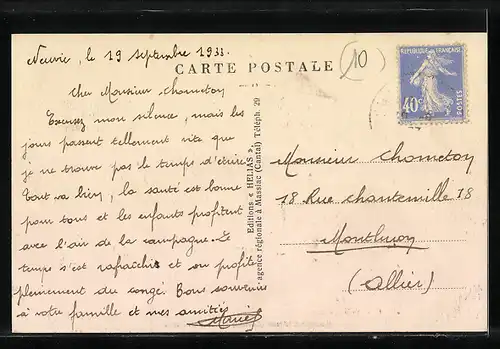 Neuvic, le 19 septembre 1933.
CARTE POSTALE
(10)
Cher Monsieur Chometon
Excusez mon silence, mais les
jours passent tellement vite que
je ne trouve pas le temps d'écrire
Tout va bien, la santé est bonne
pour tous et les enfants profitent
avec l'air de la campagne. Le
temps s'est rafraîchis et on profite
pleinement du congé. Bons souvenirs
à votre famille et mes amitiés
Editions « HELIAS »,
agence régionale à Massiac (Cantal) Téléph. 29
REPUBLIQUE FRANÇAISE
40c
POSTES
Monsieur Chometon
18 Rue chantemille 18
Montluçon
(Allier)